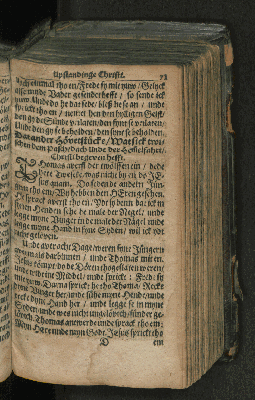 Upstandinge Christi. 73
Noch einmal tho en / Frede sy mit yuw / Gelyck
alse my de Vader gesendet hefft / so sende ick
yuw. Unde do he dat sede / bleß he se an / unde
sprickt tho en / nemet hen den hylligen Geist /
den gy de Sünde vorlaten / den synt se vorlaten /
Unde den gy se beholden / den synt se beholden.
Dat ander Hövetstücke / Wat sick twi-
schen dem Paschedach unde der Hemmelfart
Christi begeven hefft.
Thomas averst der twölffen ein / de dar
hete Twelck / was nicht by en do JE-
sus quam. Do seden de andern Jün-
gern tho em / Wy hebben den HEren geseen.
He sprack averst tho en / Ydt sy denn dat ick in
synen Henden sehe de male der Negel / unde
legge myne Vinger in de male der Negel / unde
legge myne Hand in syne Syden / wil ick ydt
nicht gelöven.
Unde aver acht Dage / weren syne Jüngern
averm als darbinnen / unde Thomas mit en.
Jesus kömpt do de Dören thogesloten weren /
unde tritt int Middel / unde sprickt: Frede sy
mit yuw. Darna sprickt he tho Thoma: Recke
dyne Vinger her / unde sühe myne Hende / unde
recke dyne Hand her / unde legge se in myne
Syden / unde wes nicht ungelövich / sünder ge-
lövich. Thomas antwerde unde sprack tho em:
Myn HEre unde myn Godt. Jesus sprickt tho
D em